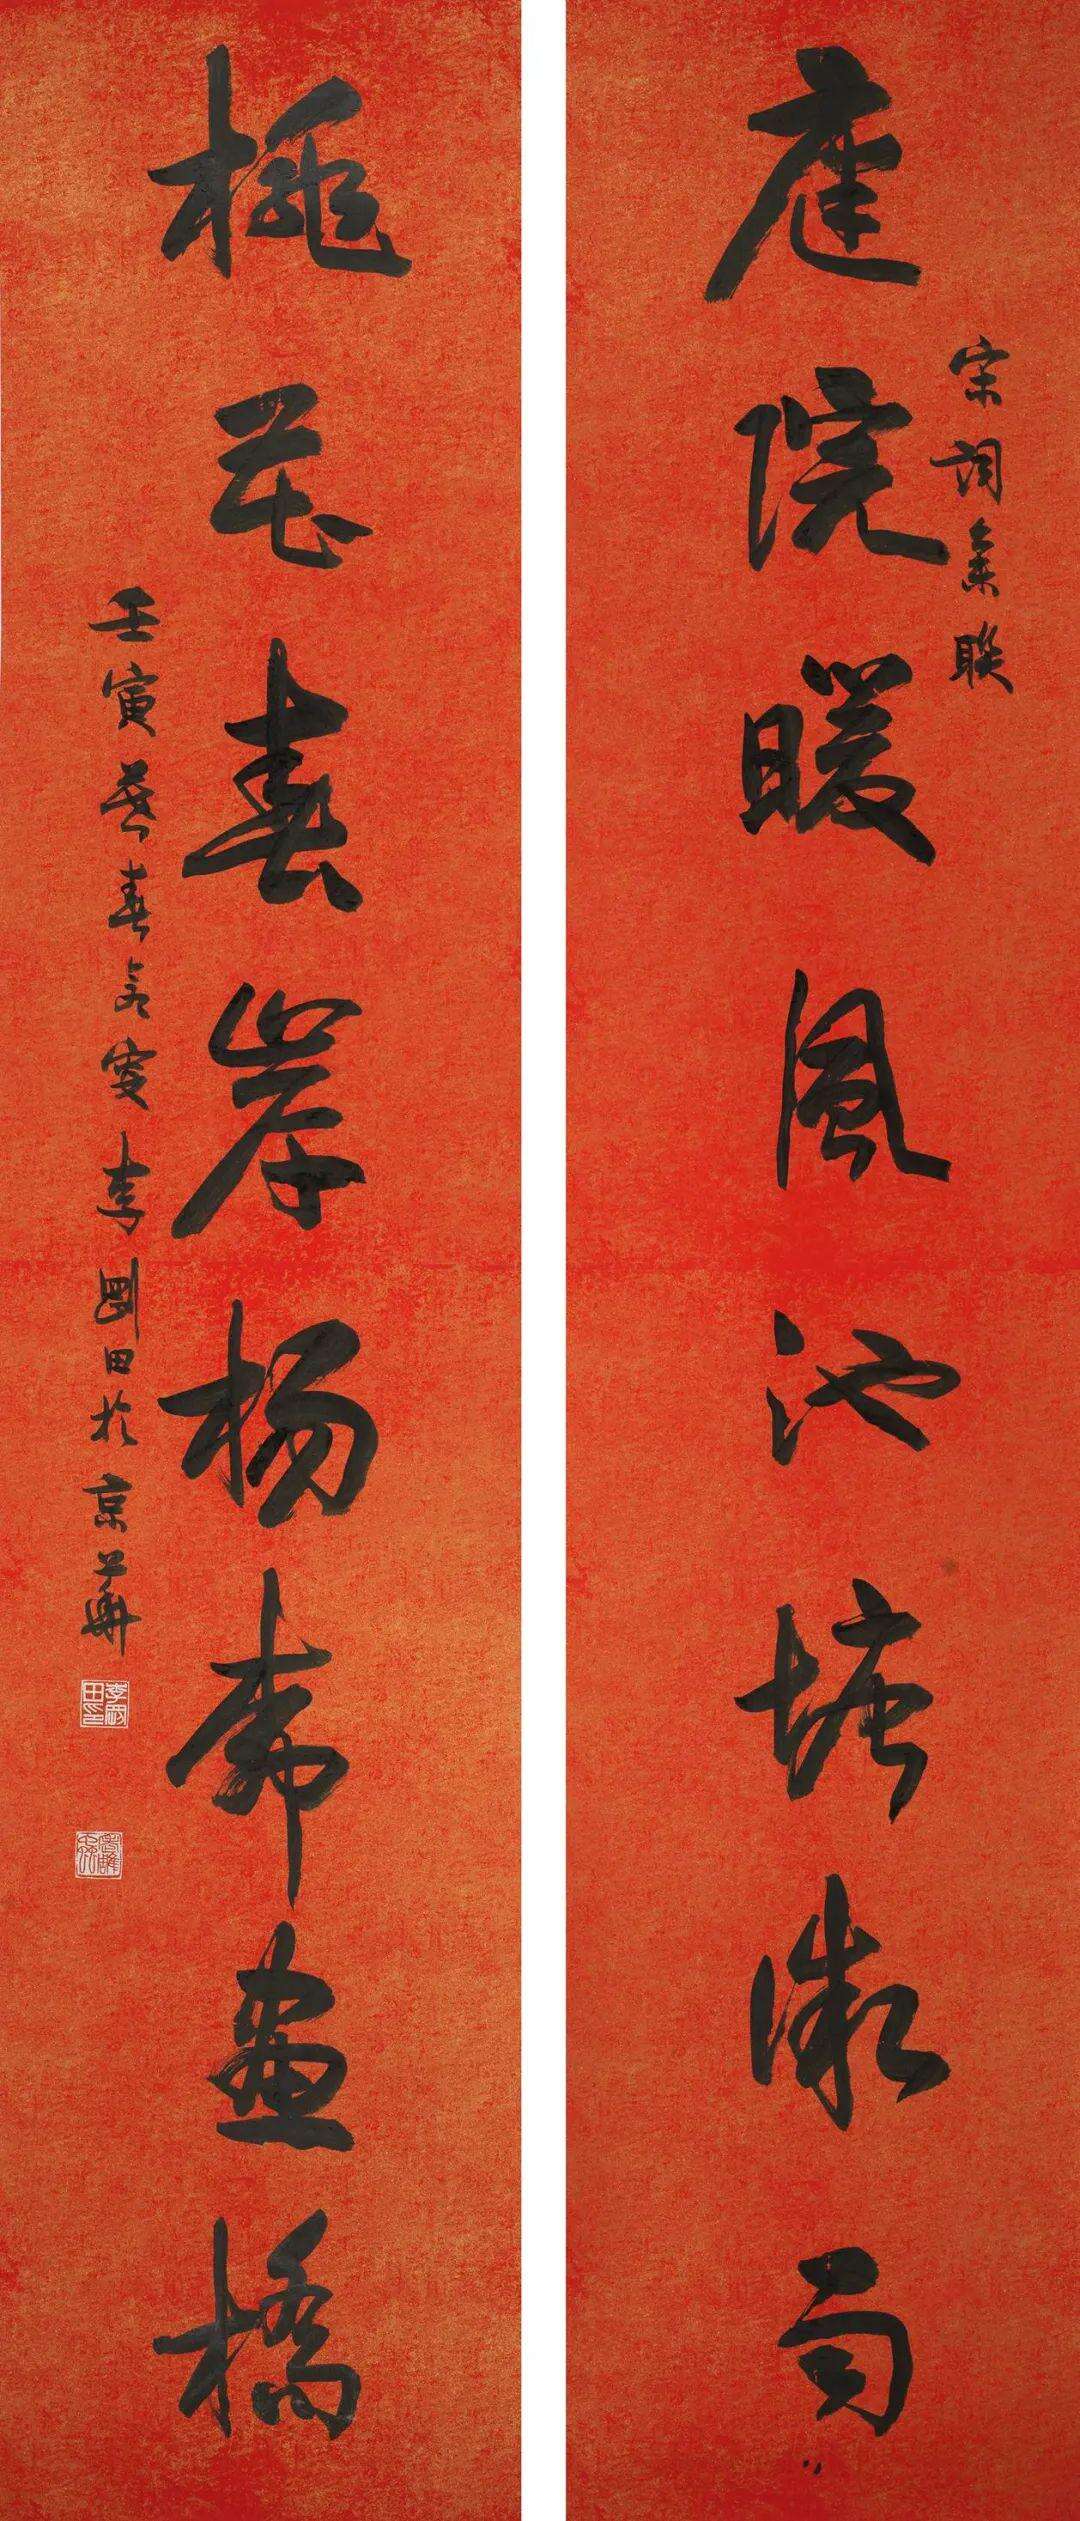 宋詞集聯
庭院暖風池塘微雨
桃花春岸楊柳畫橋
壬寅暮春李剛田於京華
李剛田印